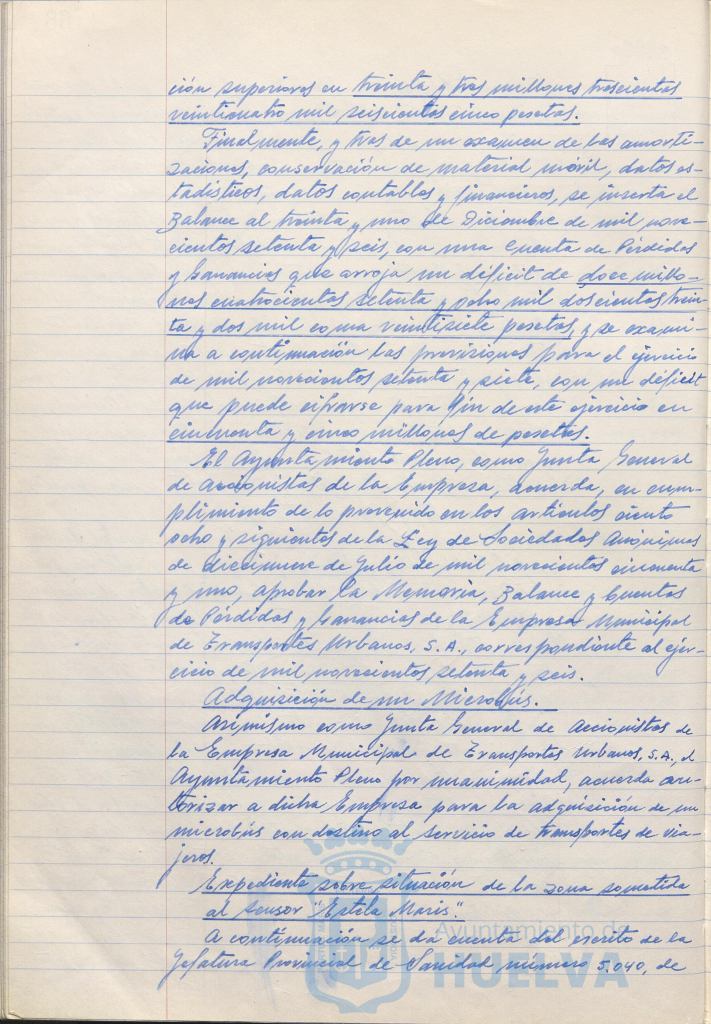 ción superiores en treinta y tres millones trescientas
veinticuatro mil seiscientas cinco pesetas.
Finalmente, y tras de un examen de las amorti-
zaciones, conservación de material móvil, datos es-
tadísticos, datos contables y financieros, se inserta el
Balance al treinta y uno de Diciembre de mil nove-
cientos setenta y seis, con una Cuenta de Pérdidas
y Ganancias que arroja un déficit de doce millo-
nes cuatrocientas setenta y ocho mil doscientas trein-
ta y dos mil coma veintisiete pesetas, y se exami-
na a continuación las previsiones para el ejercicio
de mil novecientos setenta y siete, con un déficit
que puede cifrarse para fin de este ejercicio en
cincuenta y cinco millones de pesetas.
El Ayuntamiento Pleno, como Junta General
de Accionistas de la Empresa, acuerda, en cum-
plimiento de lo prevenido en los artículos ciento
ocho y siguientes de la Ley de Sociedades Anónimas
de diecinueve de Julio de mil novecientos cincuenta
y uno, aprobar la Memoria, Balance y Cuentas
de Pérdidas y Ganancias de la Empresa Municipal
de Transportes Urbanos, S.A., correspondiente al ejer-
cicio de mil novecientos setenta y seis.
Adquisición de un Microbús.
Asimismo como Junta General de Accionistas de
la Empresa Municipal de Transportes Urbanos, S.A., el
Ayuntamiento Pleno por unanimidad, acuerda au-
torizar a dicha Empresa para la adquisición de un
microbús con destino al servicio de transportes de via-
jeros.
Expediente sobre situación de la zona sometida
al sensor "Estela Maris".
A continuación se da cuenta del escrito de la
Jefatura Provincial de Sanidad número 5.040, de
Ayuntamiento de
HUELVA